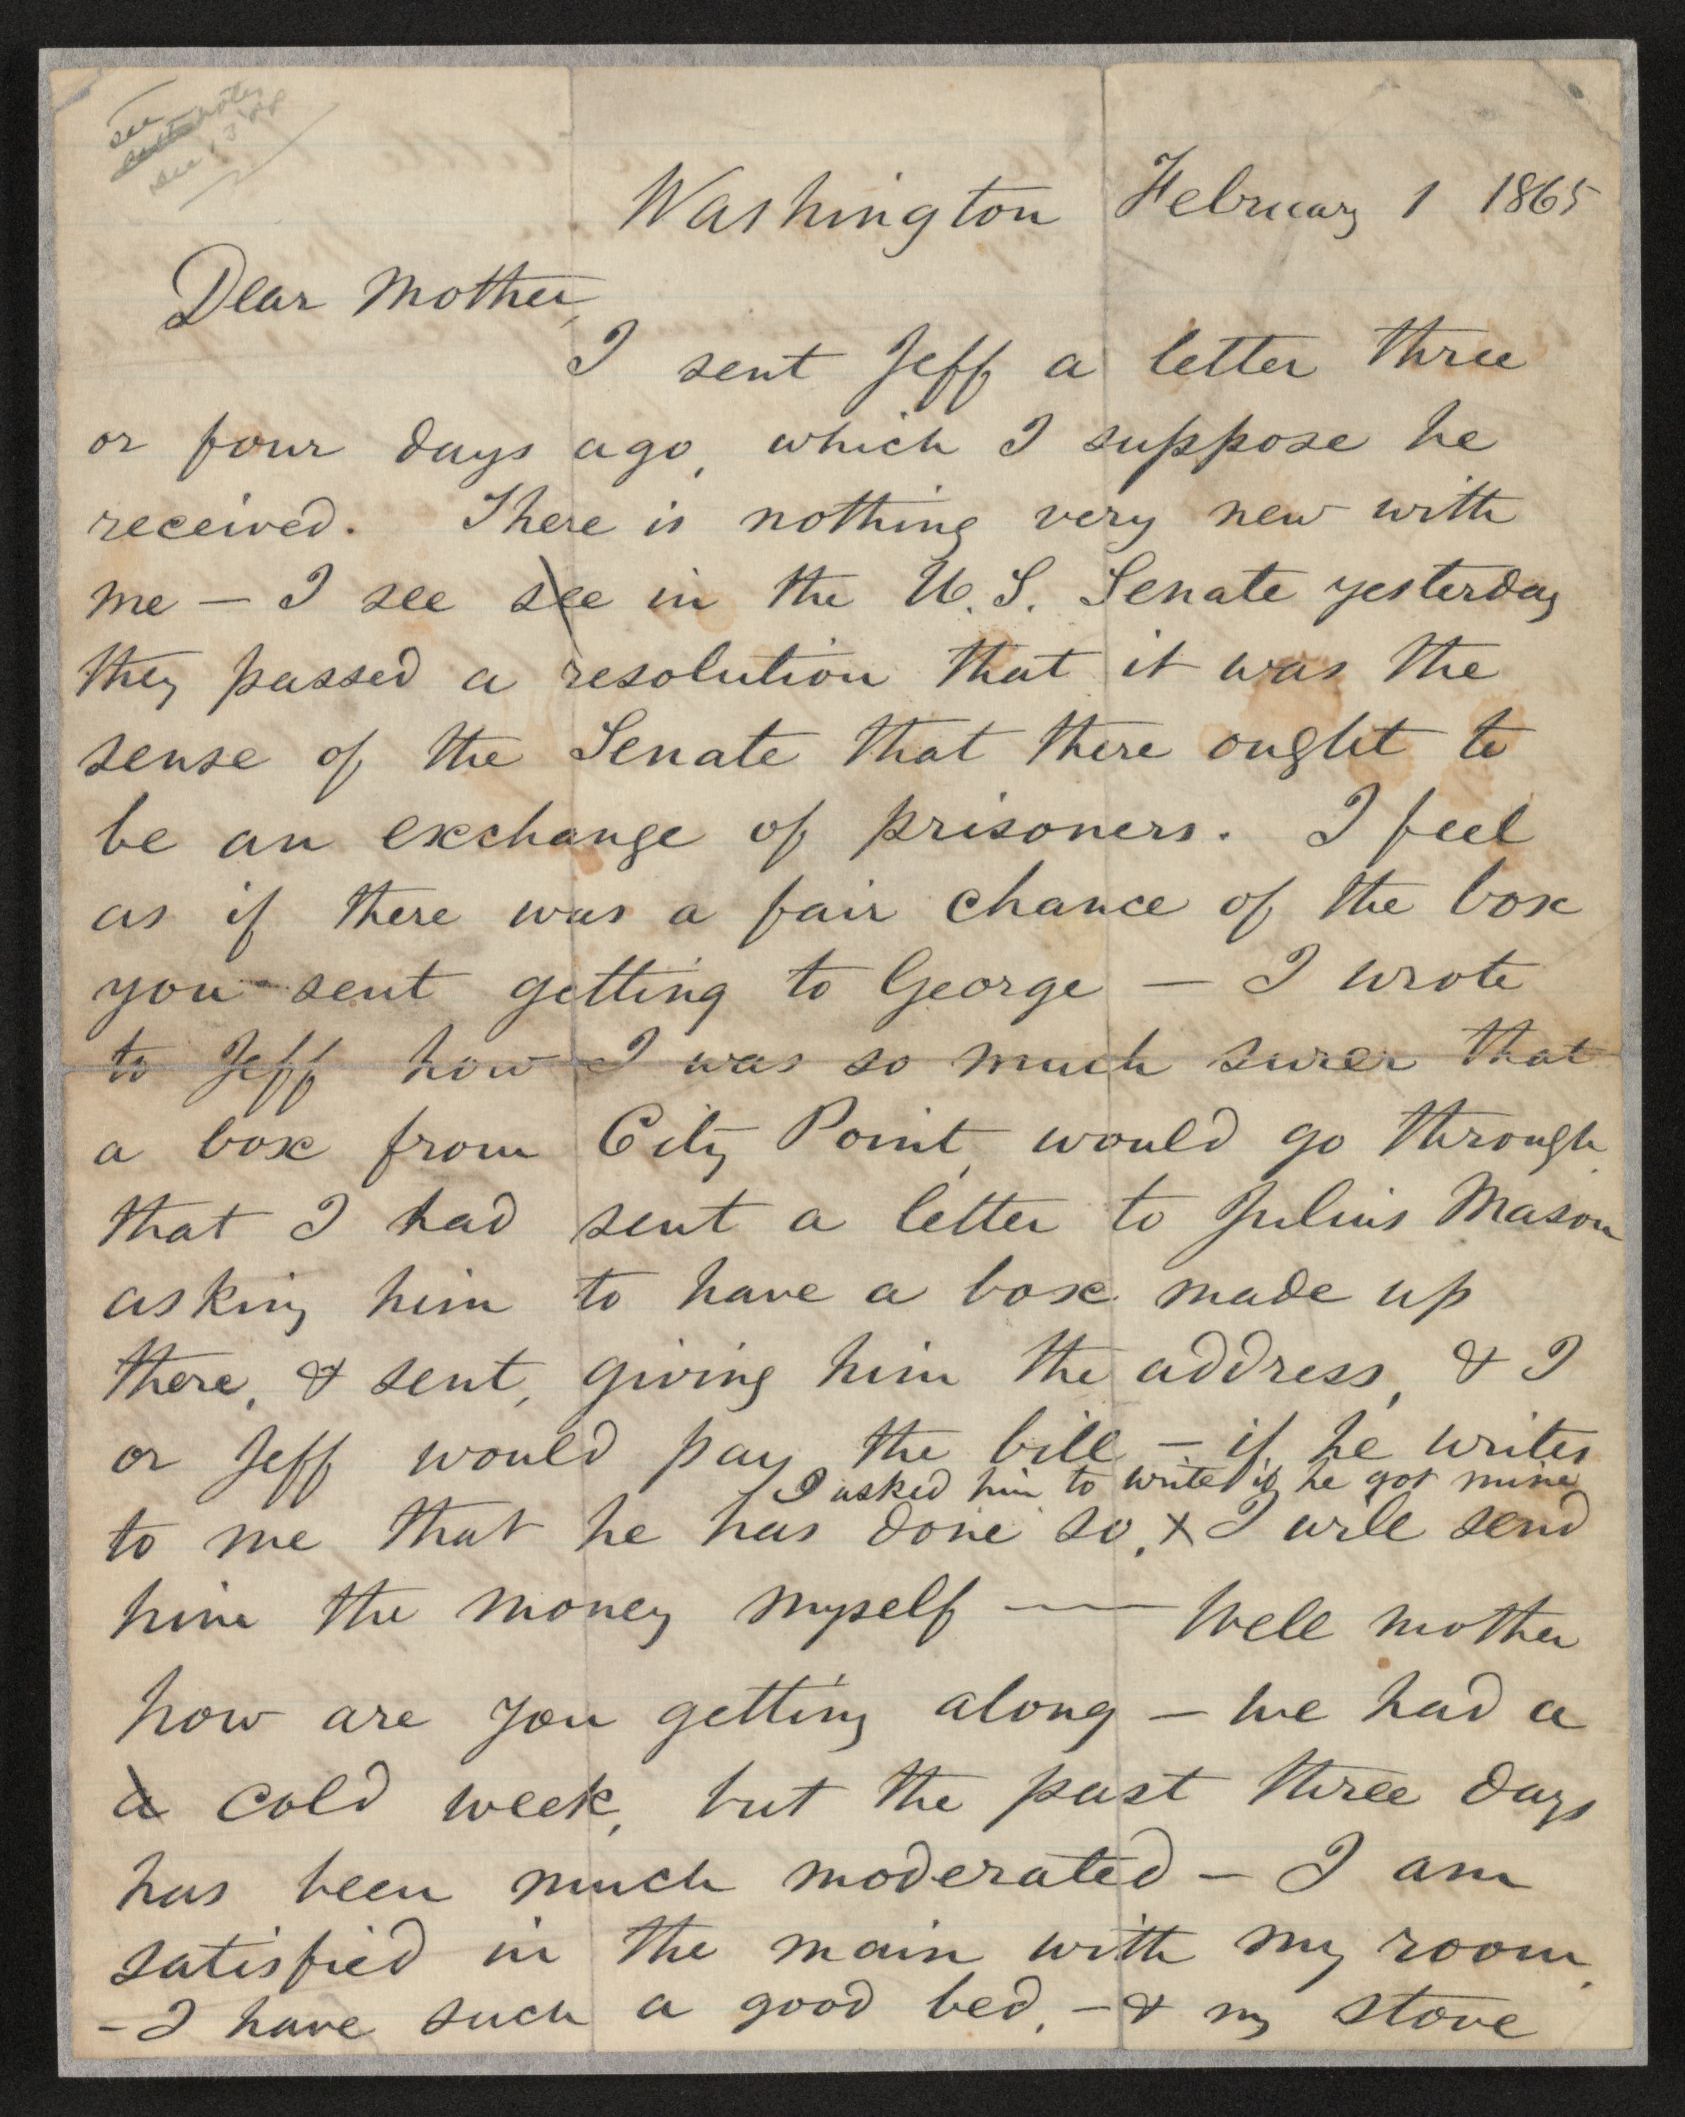 see notes
see
Washington February 1 1865
Dear Mother,
I sent Jeff a letter three
or four days ago, which I suppose he
received. There is nothing very new with
me – I see see in the U. S. Senate yesterday
they passed a resolution that it was the
sense of the Senate that there ought to
be an exchange of prisoners. I feel
as if there was a fair chance of the box
you sent getting to George – I wrote
to Jeff how I was so much surer that
a box from City Point, would go through,
that I had sent a letter to Julius Mason
asking him to have a box made up
there, & sent, giving him the address, & I
or Jeff would pay the bill – if he writes
I asked him to write if he got mine
to me that he has done so, x I will send
him the money myself — Well mother
how are you getting along – we had a
a cold week, but the past three days
has been much moderated – I am
satisfied in the main with my room,
– I have such a good bed, – & my stove